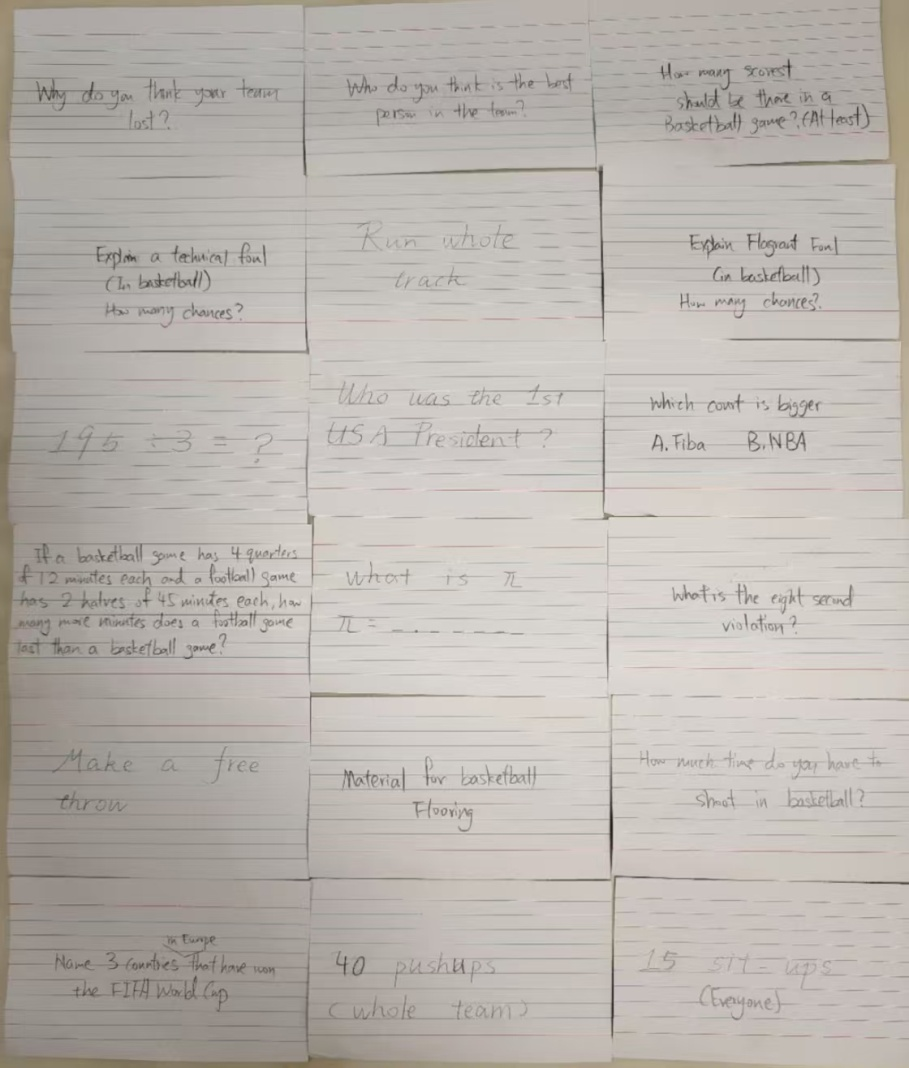 Why do you think your team
lost?
Who do you think is the best
person in the team?
How many scorest
should be there in a
Basketball game? (At least)
Explain a technical foul
(In basketball)
How many chances?
Run whole
track
Explain Flagrant Foul
(in basketball)
How many chances?
195 ÷ 3 = ?
Who was the 1st
USA President ?
Which court is bigger
A. Fiba B. NBA
If a basketball game has 4 quarters
of 12 minutes each and a football game
has 2 halves of 45 minutes each, how
many more minutes does a football game
last than a basketball game?
What is π
π = _ _ _ _ _ _ _
What is the eight second
violation?
Make a free
throw
Material for basketball
Flooring
How much time do you have to
shoot in basketball?
in Europe
Name 3 countries that have won
the FIFA World Cup
40 pushups
(whole team)
15 sit-ups
(Everyone)